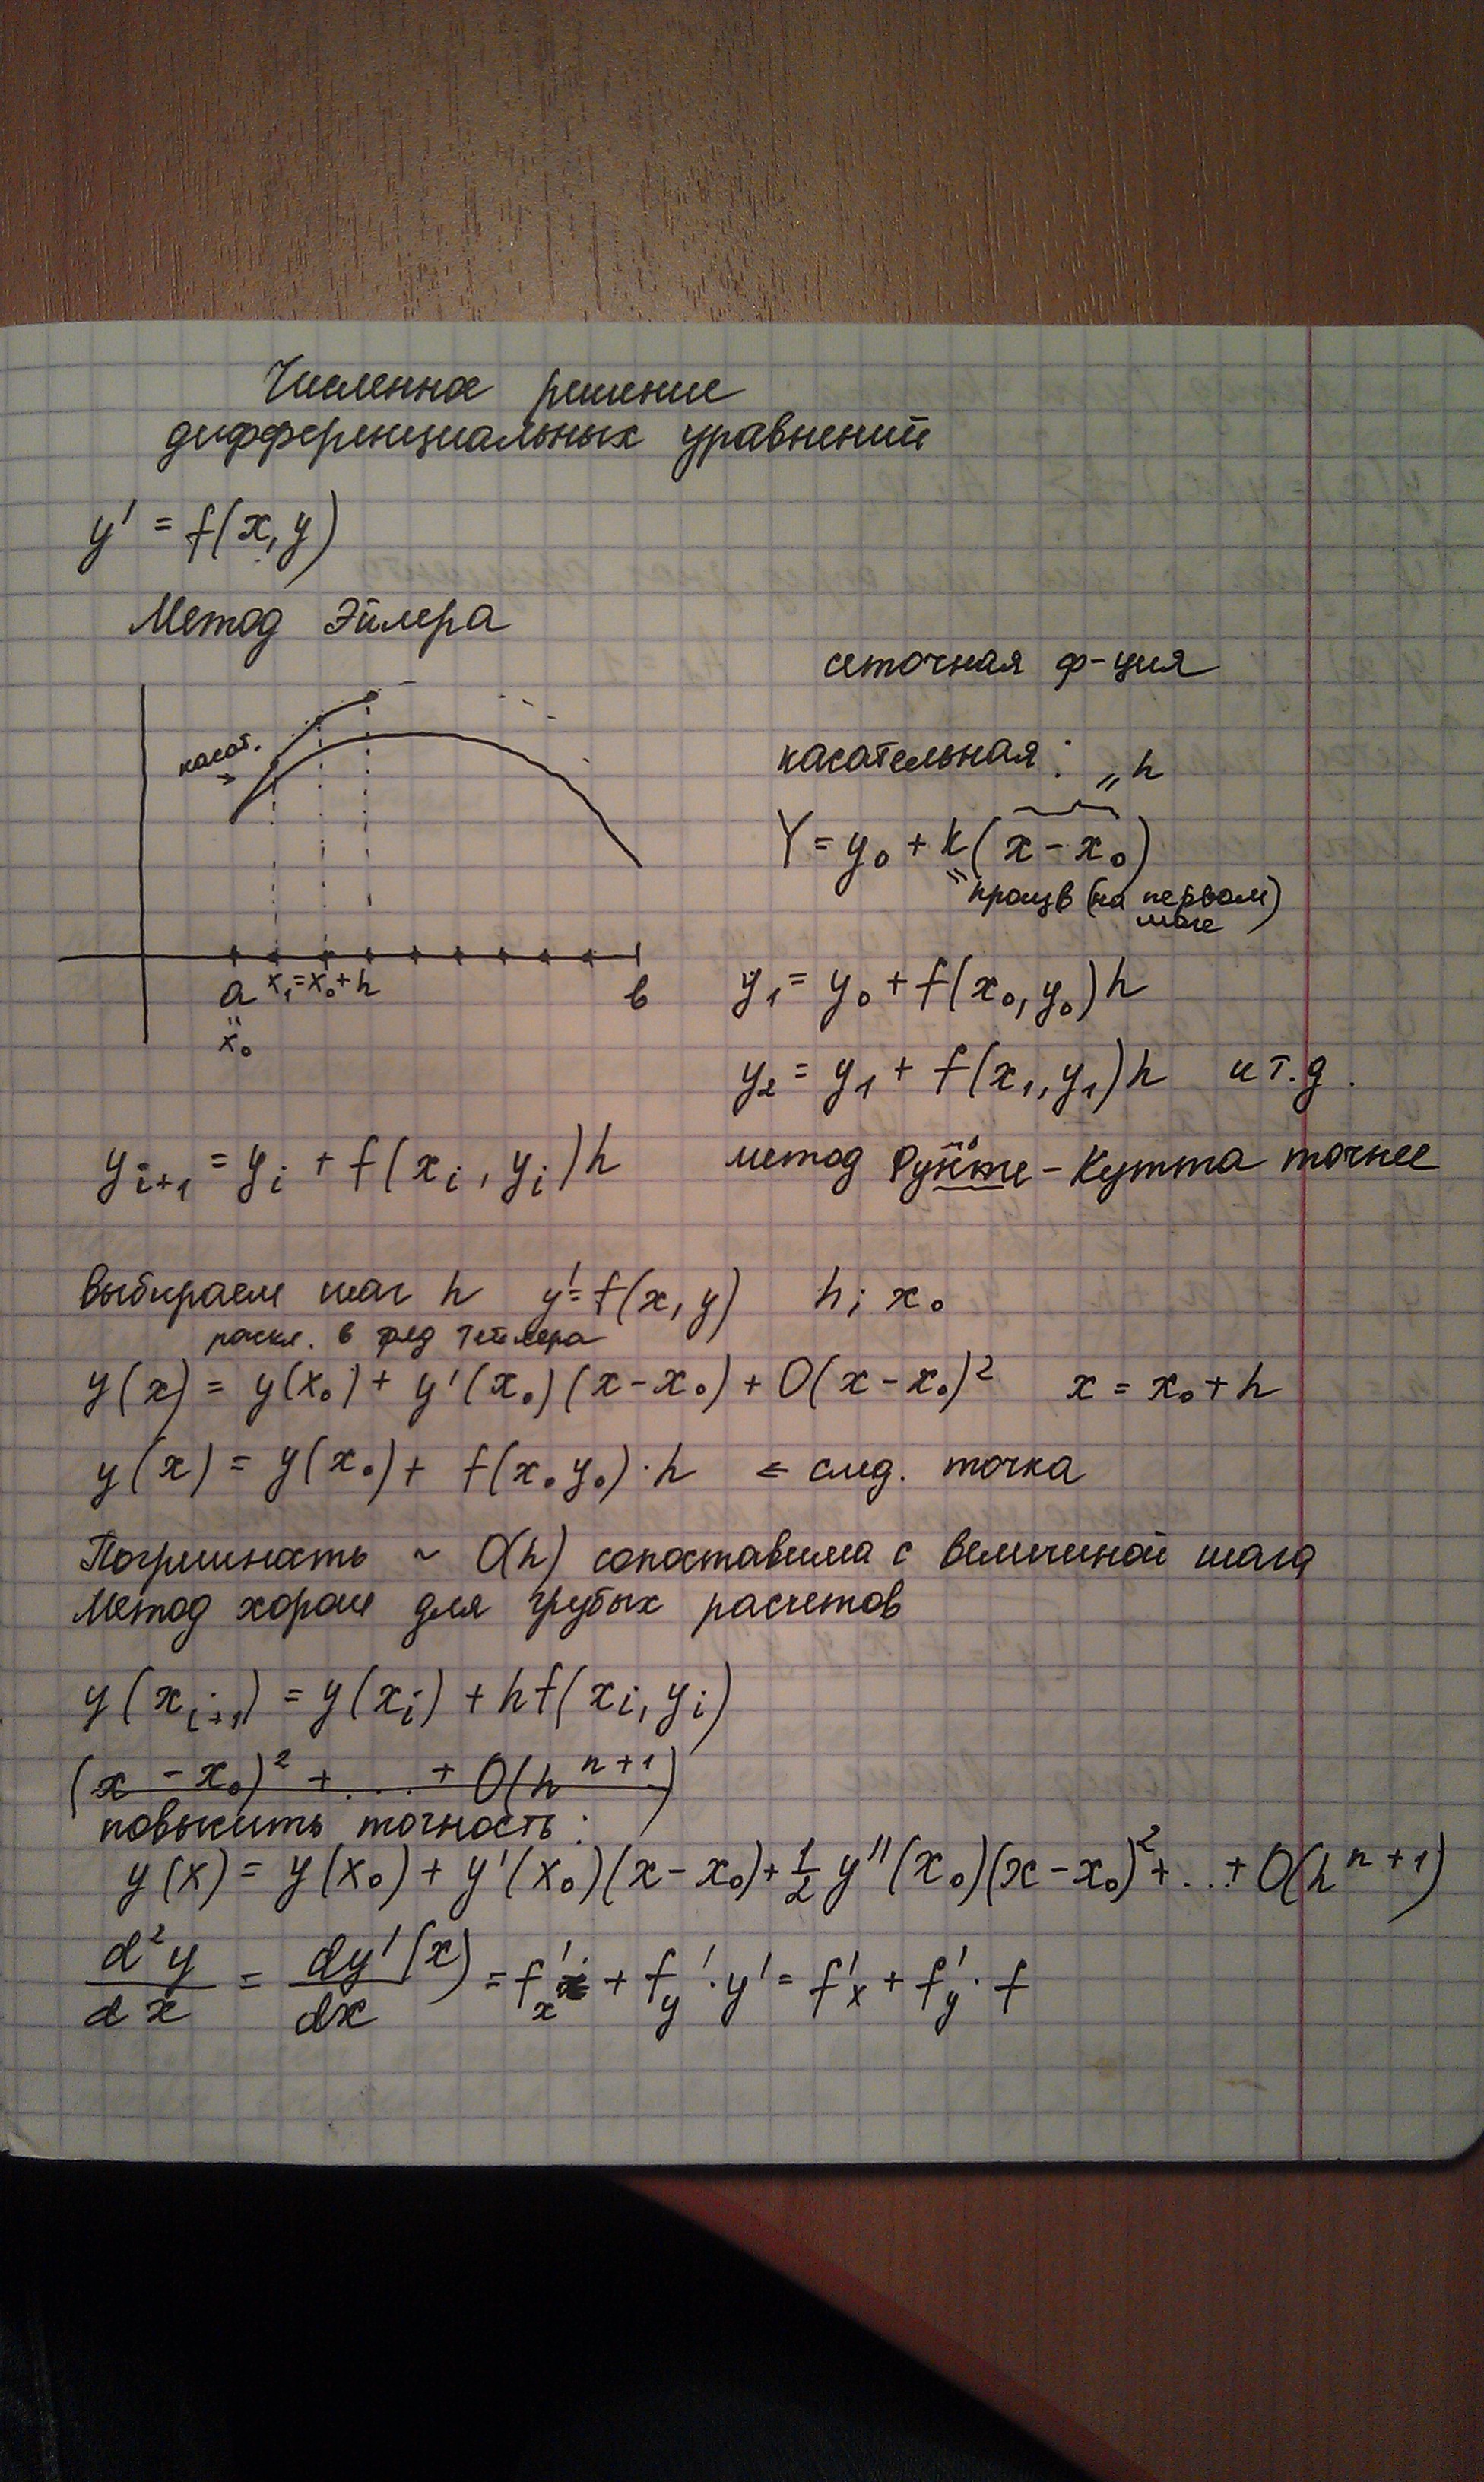 Численное решение
дифференциальных уравнений
y' = f(x, y)
Метод Эйлера
сеточная ф-ция
касат.
касательная: " h
Y = y₀ + k(x - x₀)
" произв (на первом)
шаге
a x₁=x₀+h b
"
x₀
y₁ = y₀ + f(x₀, y₀)h
y₂ = y₁ + f(x₁, y₁)h и т.д.
yᵢ₊₁ = yᵢ + f(xᵢ, yᵢ)h
метод - Кутта точнее
Выбираем шаг h y' = f(x, y) h; x₀
раскл. в ряд Тейлора
y(x) = y(x₀) + y'(x₀)(x - x₀) + O(x - x₀)² x = x₀ + h
y(x) = y(x₀) + f(x₀ y₀)·h ⇐ след. точка
Погришность ~ O(h) сопоставима с величиной шага
Метод хорош для грубых расчетов
y(xᵢ₊₁) = y(xᵢ) + hf(xᵢ, yᵢ)
(x - x₀)² + ... + O(hⁿ⁺¹)
повысить точность:
y(x) = y(x₀) + y'(x₀)(x - x₀) + 1/2 y''(x₀)(x - x₀)² + ... + O(hⁿ⁺¹)
d²y/dx = dy'(x)/dx = f'ₓ + f'y · y' = f'x + f'y · f